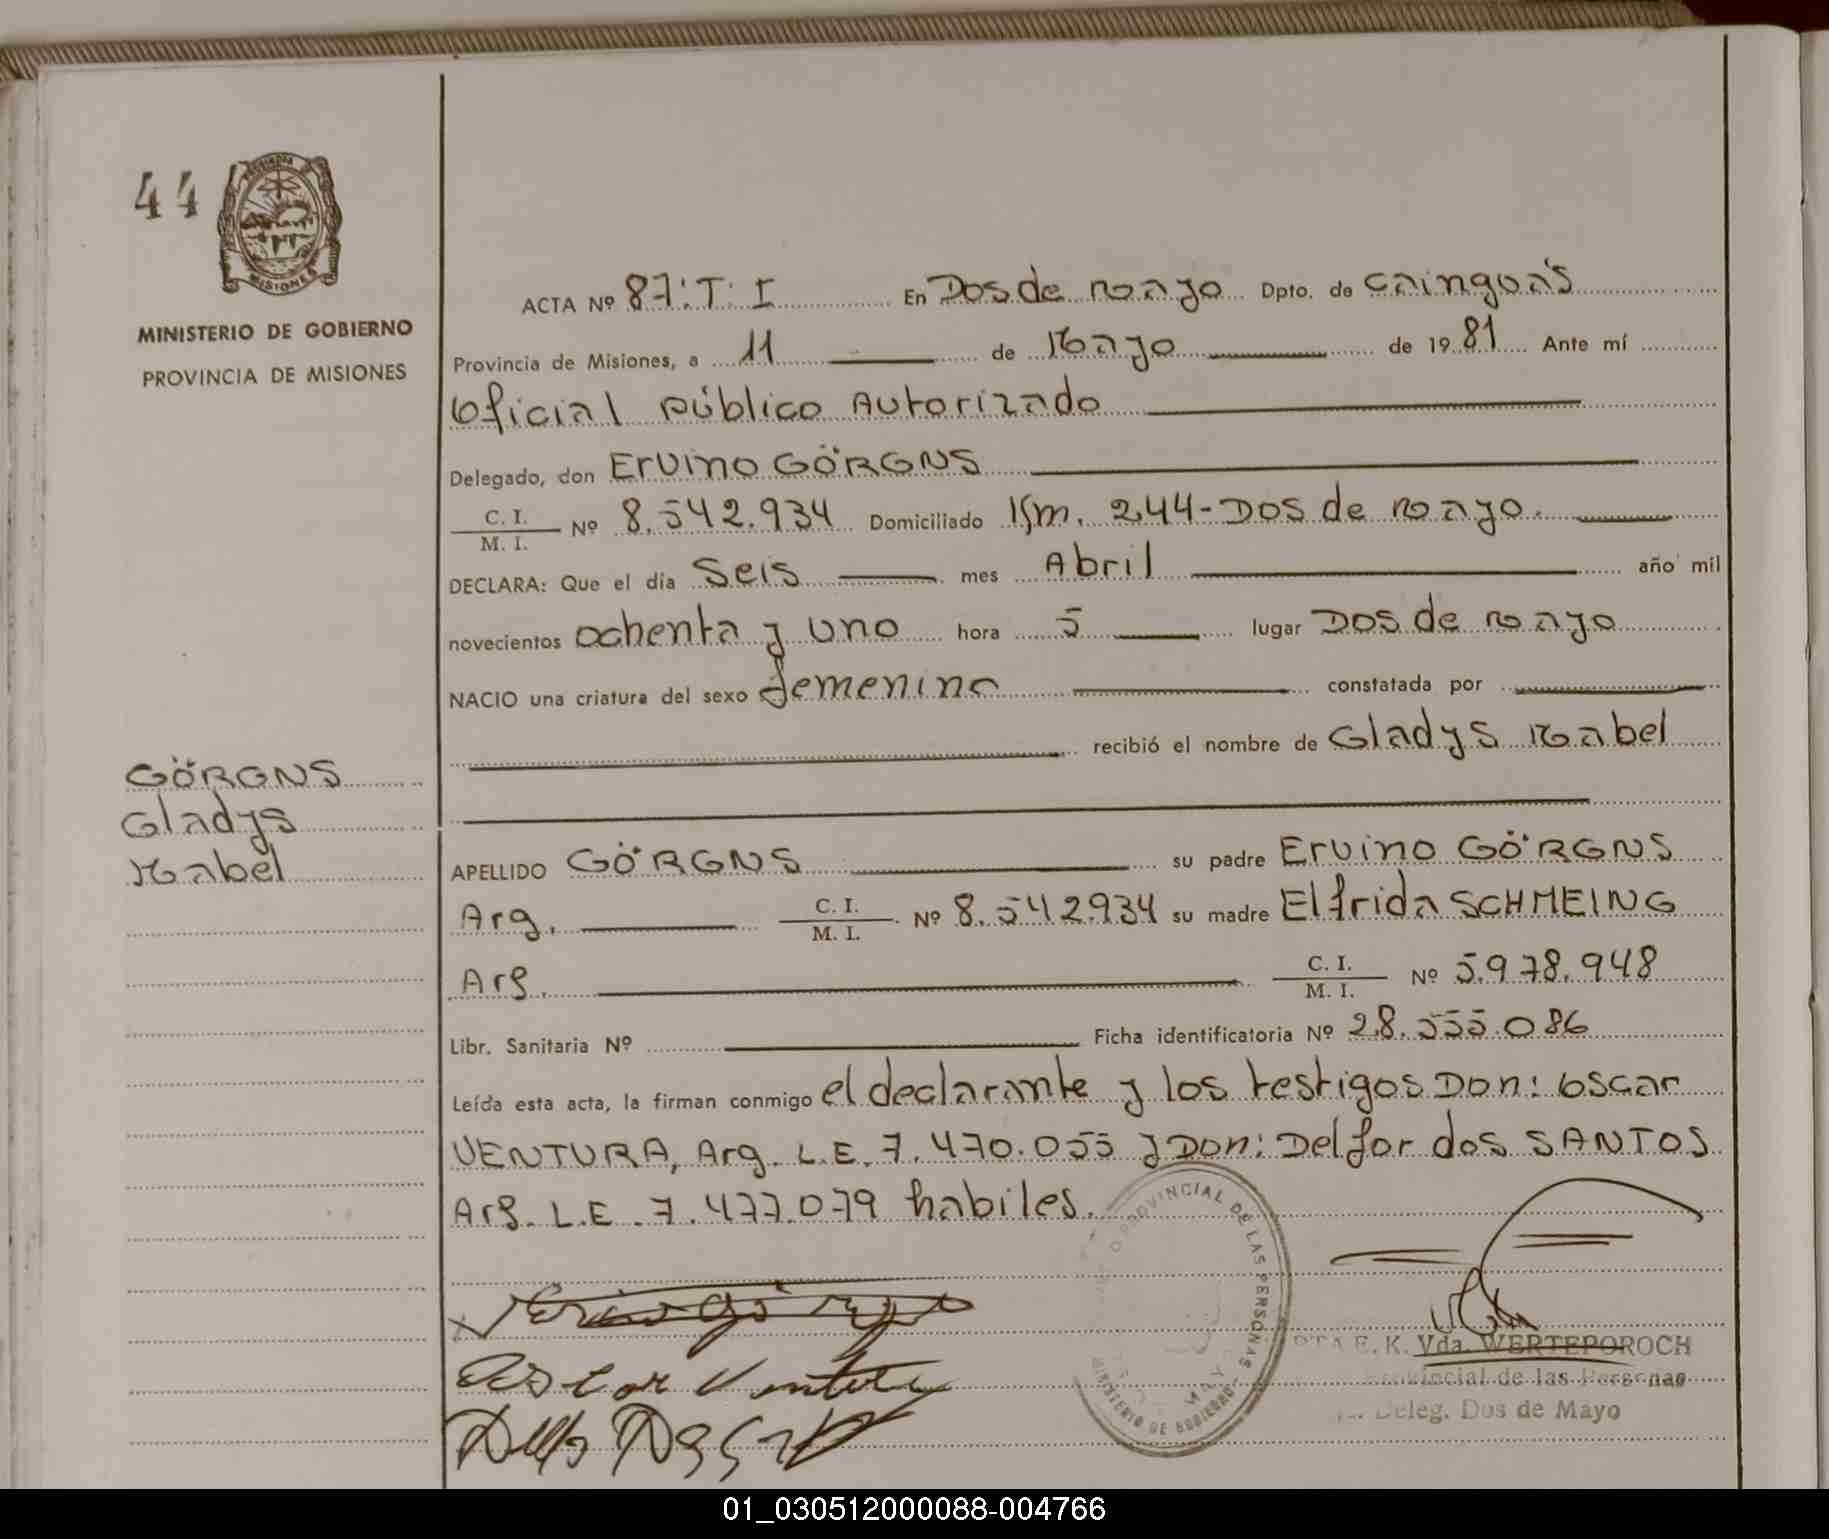 44
MISIONES
MINISTERIO DE GOBIERNO
PROVINCIA DE MISIONES
ACTA Nº 87: T: I En Dos de Mayo Dpto. de Cainguás
Provincia de Misiones, a 11 de Mayo de 1981 Ante mí
Oficial Público Autorizado
Delegado, don Ervino GÖRGNS
C. I. / M. I. Nº 8.542.934 Domiciliado Km. 244-Dos de Mayo.
DECLARA: Que el día Seis mes Abril año mil
novecientos ochenta y uno hora 5 lugar Dos de Mayo
NACIO una criatura del sexo femenino constatada por
recibió el nombre de Gladys Mabel
GÖRGNS
Gladys
Mabel
APELLIDO GÖRGNS su padre Ervino GÖRGNS
Arg. C. I. / M. I. Nº 8.542.934 su madre Elfrida SCHMEING
Arg. C. I. / M. I. Nº 5.978.948
Libr. Sanitaria Nº Ficha identificatoria Nº 28.555.086
Leída esta acta, la firman conmigo el declarante y los testigos Don: Oscar
VENTURA, Arg. L.E. 7.470.055 y Don: Delfor dos SANTOS
Arg. L.E. 7.477.079 habiles.
PROVINCIAL DE LAS PERSONAS
MINISTERIO DE GOBIERNO
Oscar Ventura
E. K. Vda. WERTEPOROCH
Provincial de las Personas
Deleg. Dos de Mayo
01_030512000088-004766